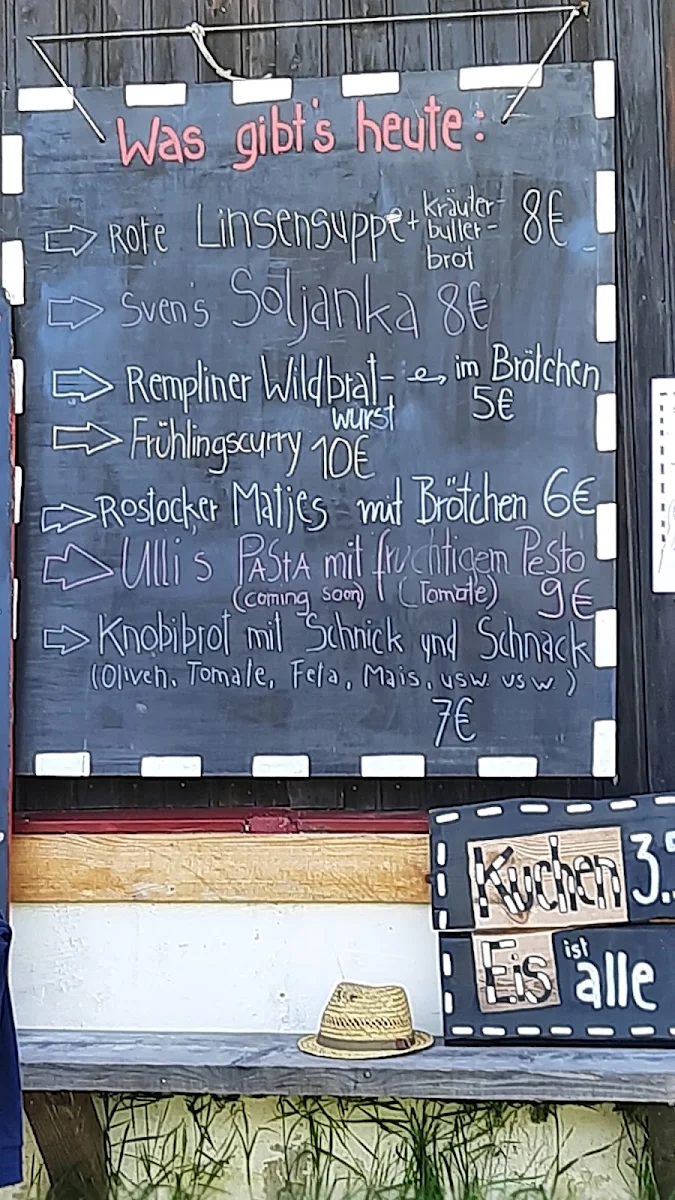 Was gibt's heute:
Rote Linsensuppe + Kräuter-
butter-
brot 8€
Sven's Soljanka 8€
Rempliner Wildbrat- im Brötchen
wurst 5€
Frühlingscurry 10€
Rostocker Matjes mit Brötchen 6€
Ulli's PAStA mit fruchtigem Pesto
(coming soon) (Tomate) 9€
Knobibrot mit Schnick und Schnack
(Oliven, Tomate, Feta, Mais, usw. usw.)
7€
Kuchen 3.
Eis ist alle